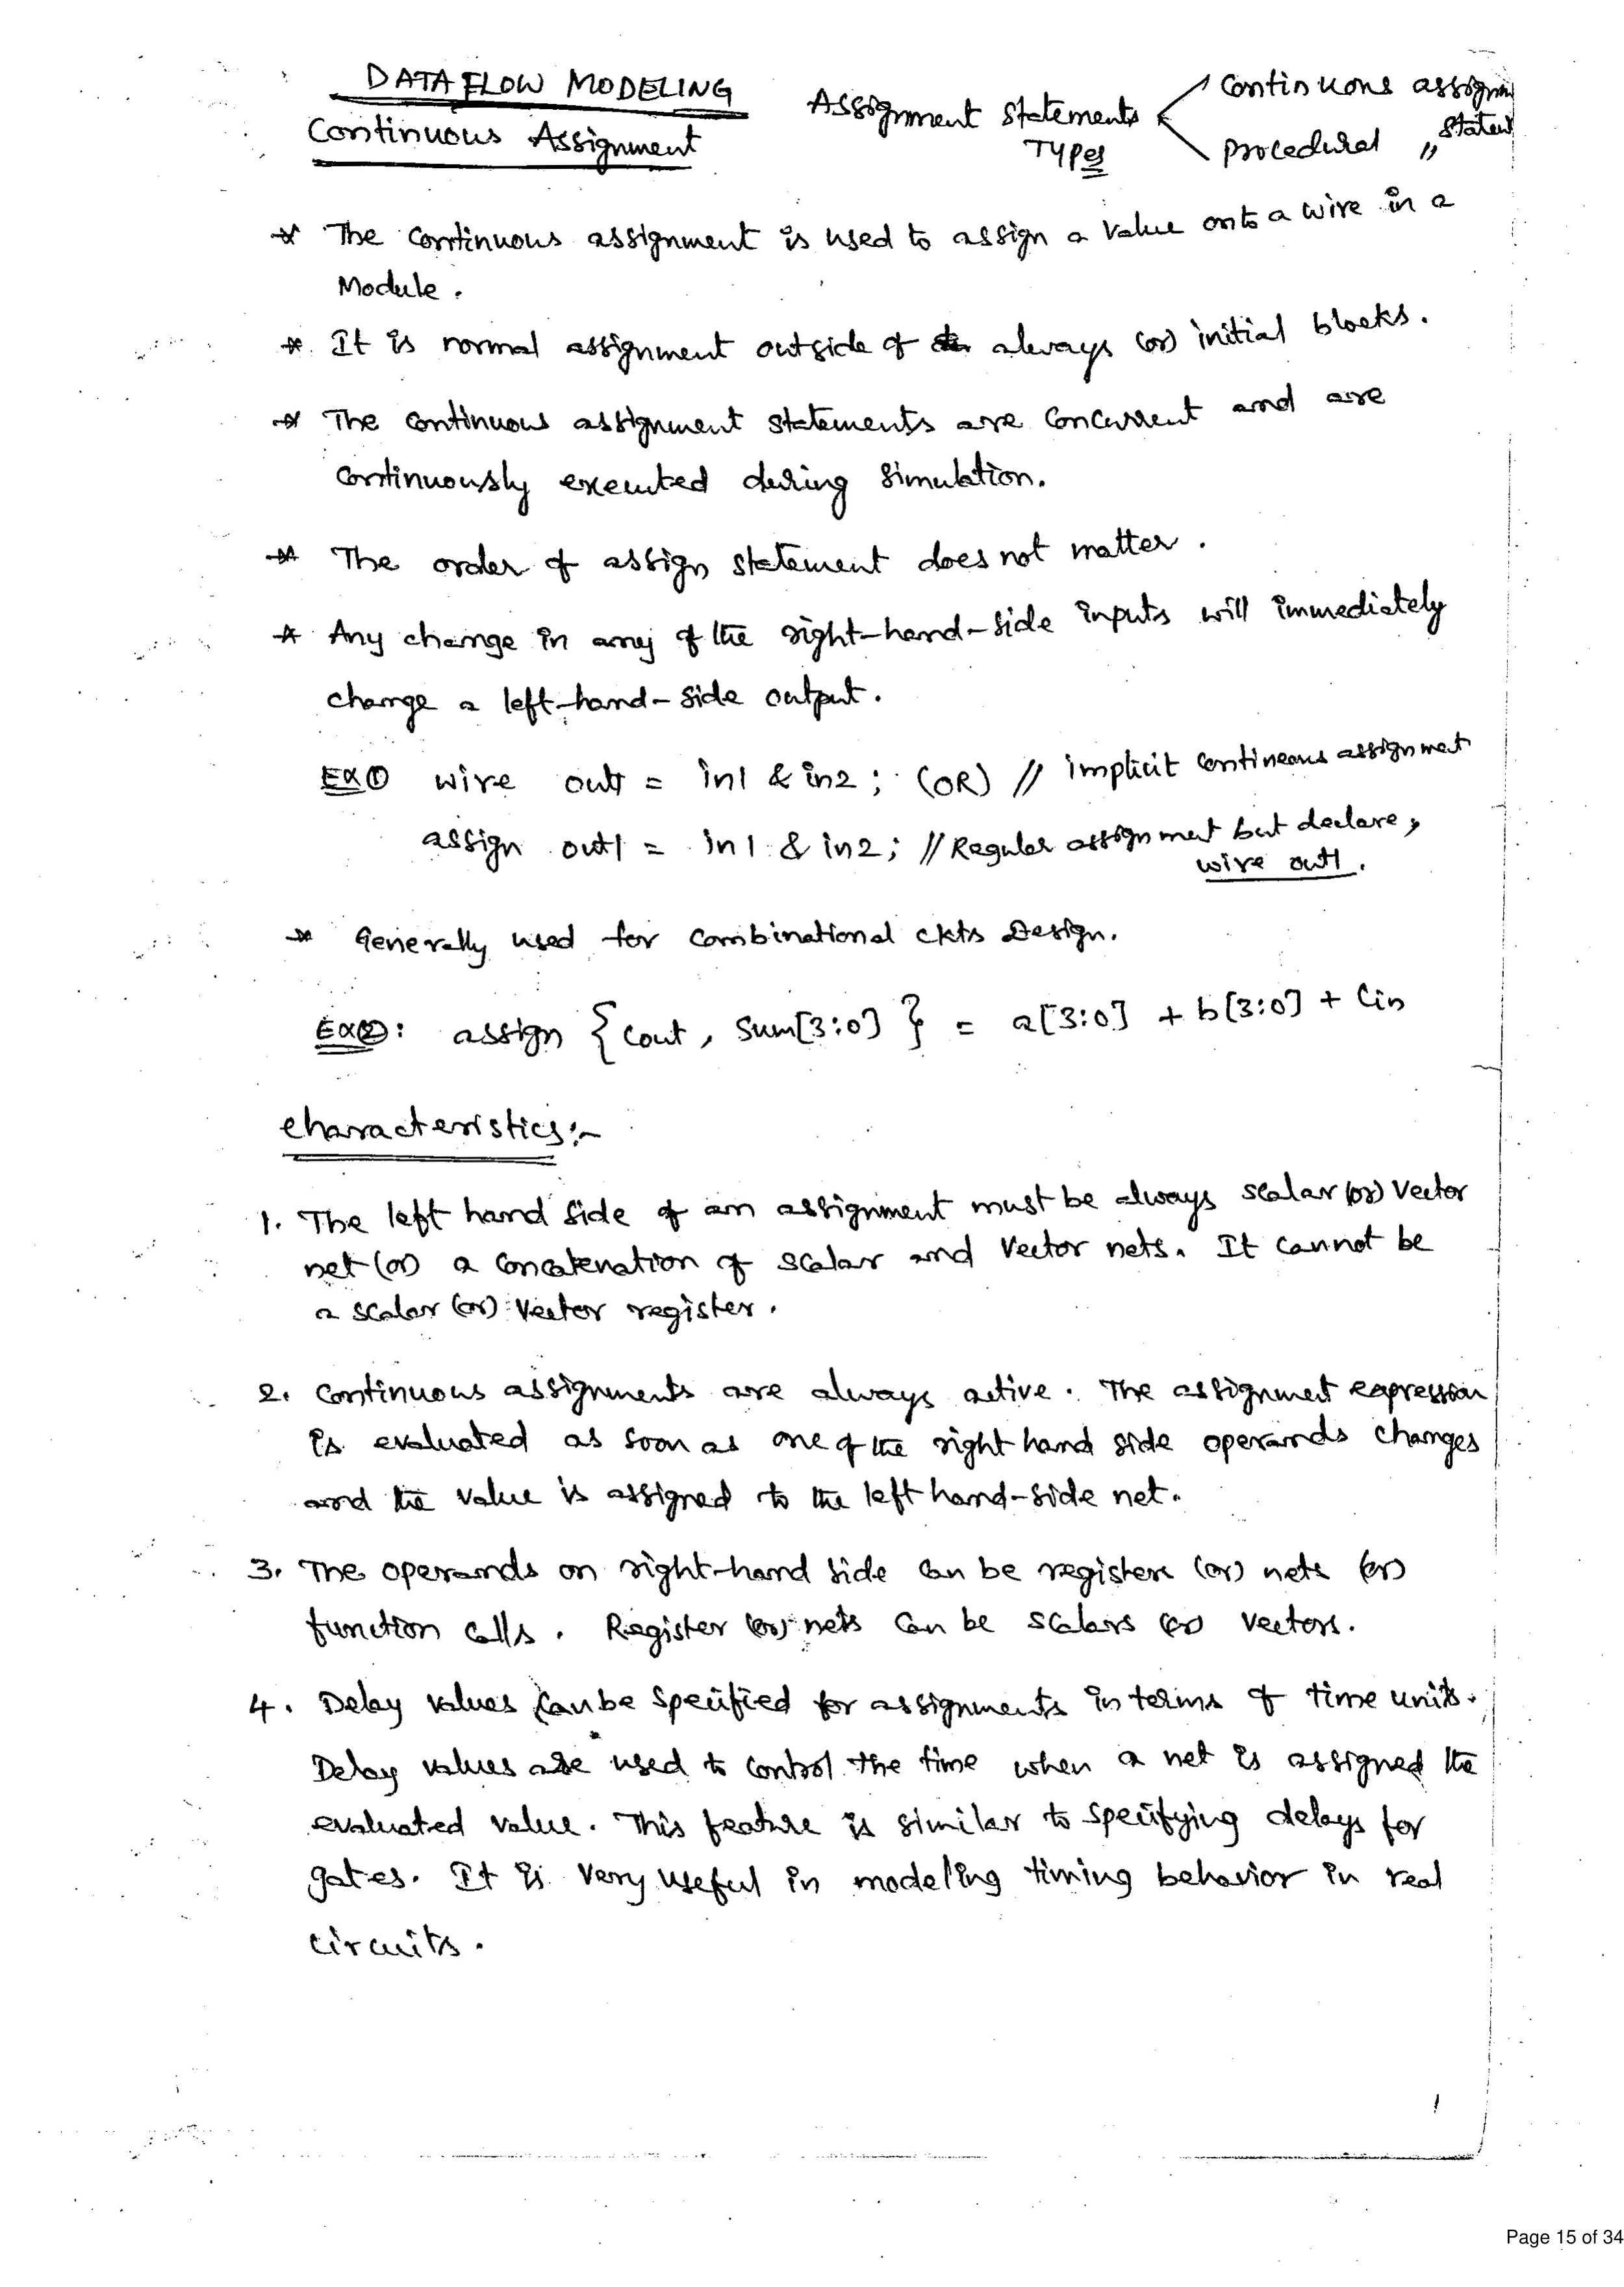 DATA FLOW MODELING
Continuous Assignment
Assignment Statements
Types
Continuous assignm
Procedural " Statem
* The continuous assignment is used to assign a value onto a wire in a
Module.
* It is normal assignment outside of always (or) initial blocks.
* The continuous assignment statements are concurrent and are
continuously executed during simulation.
* The order of assign statement does not matter.
* Any change in any of the right-hand-side inputs will immediately
change a left-hand-side output.
EX① wire out1 = in1 & in2; (OR) // implicit continuous assignment
assign out1 = in1 & in2; // Regular assignment but declare,
wire out1.
* Generally used for combinational ckts Design.
EX②: assign {cout, sum[3:0]} = a[3:0] + b[3:0] + Cin
characteristics:-
1. The left hand side of an assignment must be always scalar (or) vector
net (or) a concatenation of scalar and vector nets. It cannot be
a scalar (or) vector register.
2. Continuous assignments are always active. The assignment expression
is evaluated as soon as one of the right hand side operands changes
and the value is assigned to the left hand-side net.
3. The operands on right-hand side can be registers (or) nets (or)
function calls. Register (or) nets can be scalars (or) vectors.
4. Delay values can be specified for assignments in terms of time units.
Delay values are used to control the time when a net is assigned the
evaluated value. This feature is similar to specifying delays for
gates. It is very useful in modeling timing behavior in real
circuits.
Page 15 of 34